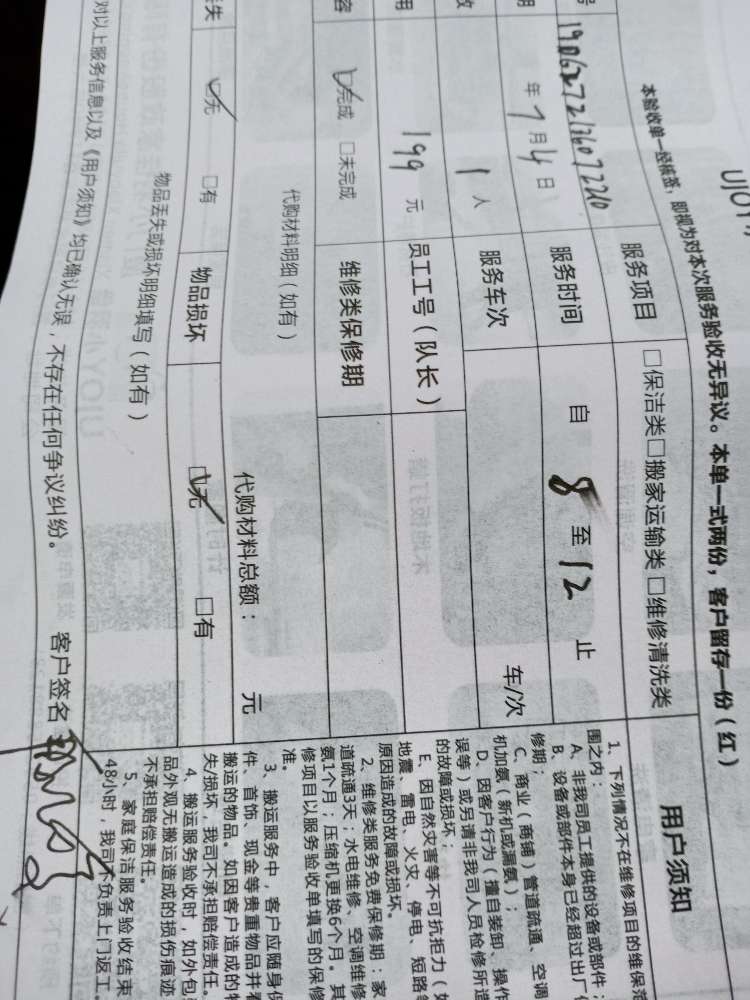 本验收单一经核签，即视为对本次服务验收无异议。本单一式两份，客户留存一份（红）
号
服务项目 □保洁类□搬家运输类 □维修清洗类
期 年 7 月 4 日 服务时间 自 8 至 12 止
1 人 服务车次 车/次
用 199 元 员工工号（队长）
容 完成 □未完成 维修类保修期
代购材料明细（如有） 代购材料总额： 元
失 无 □有 物品损坏 无 □有
物品丢失或损坏明细填写（如有）
对以上服务信息以及《用户须知》均已确认无误，不存在任何争议纠纷。 客户签名
用户须知
1、下列情况不在维修项目的维保范
围之内：
A、非我司员工提供的设备或部件；
B、设备或部件本身已经超过出厂
修期；
C、商业（商铺）管道疏通、空调
机加氨（新机或漏氨）；
D、因客户行为（擅自装卸、操作
误等）或另请非我司人员检修所造
的故障或损坏；
E、因自然灾害等不可抗拒力（如
地震、雷电、火灾、停电、短路等
原因造成的故障或损坏。
2、维修类服务免费保修期：家
道疏通3天；水电维修、空调维修
氨1个月；压缩机更换6个月。其
修项目以服务验收单填写的保修
准。
3、搬运服务中，客户应随身保
件、首饰、现金等贵重物品并看
搬运的物品。如因客户造成的物
失/损坏，我司不承担赔偿责任。
4、搬运服务验收时，如外包装
品外观无搬运造成的损伤痕迹
不承担赔偿责任。
5、家庭保洁服务验收结束
48小时，我司不负责上门返工。